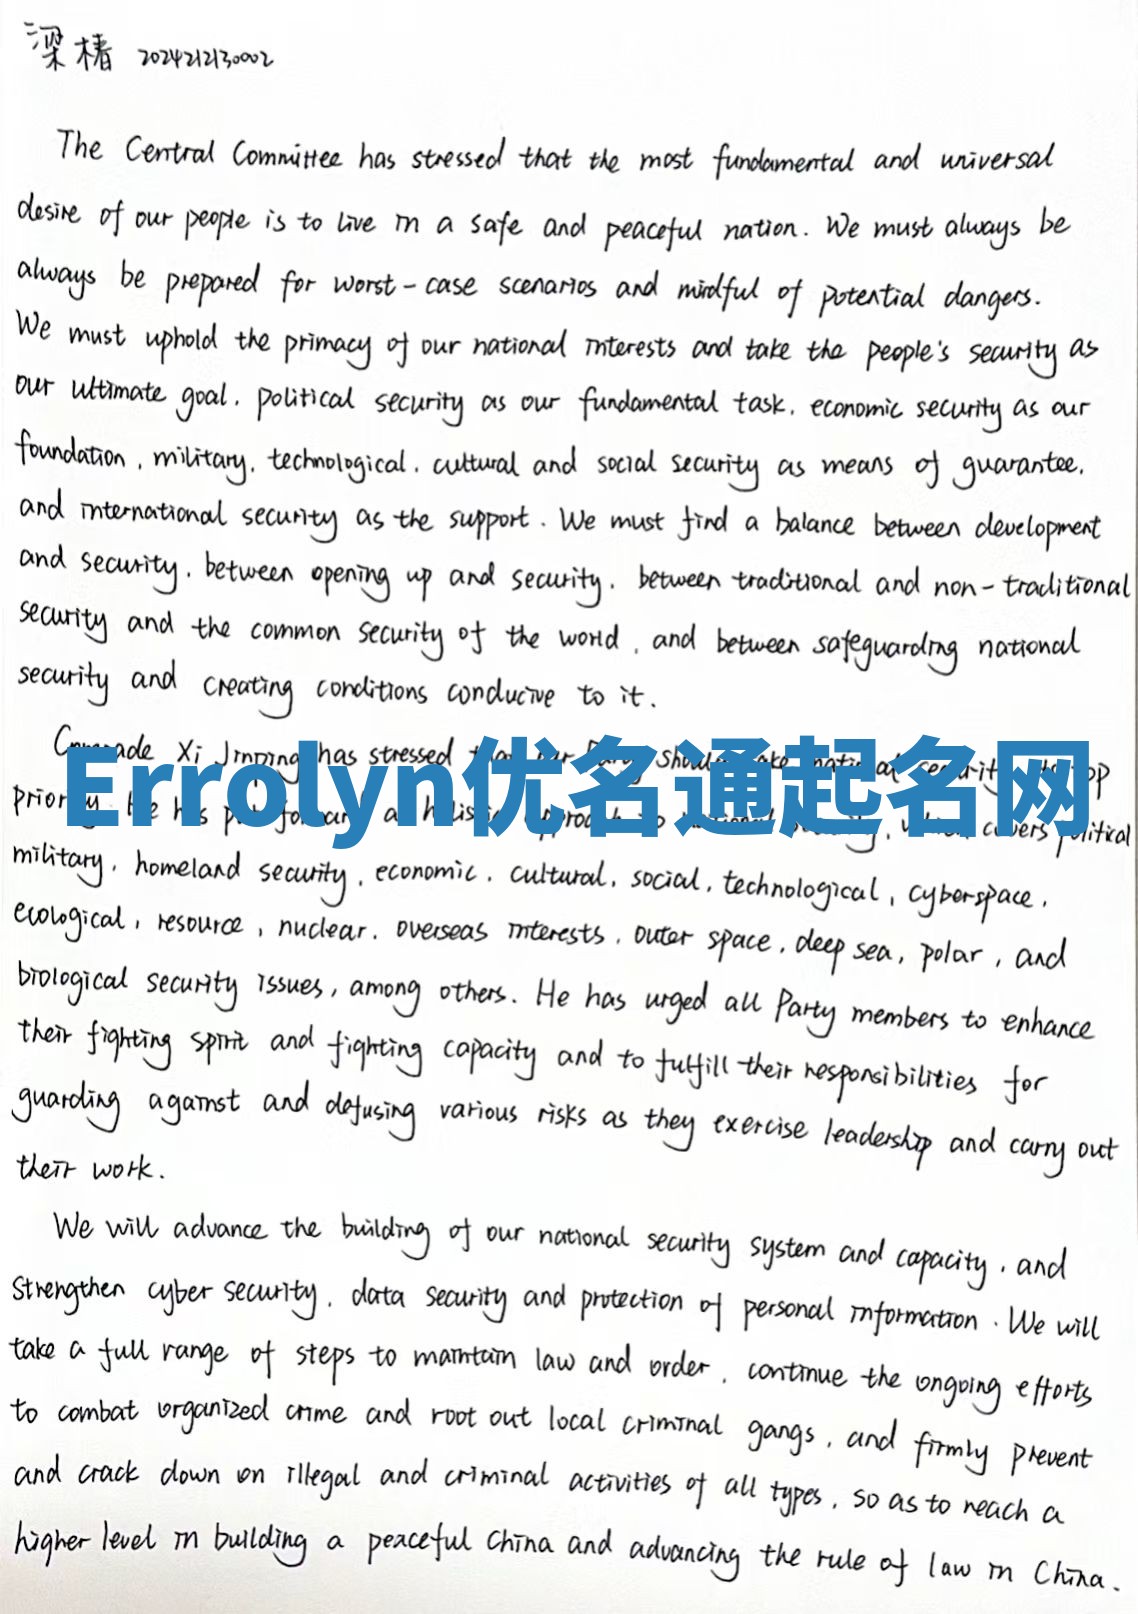 梁椿 2024212130002
The Central Committee has stressed that the most fundamental and universal
desire of our people is to live in a safe and peaceful nation. We must always be
always be prepared for worst-case scenarios and mindful of potential dangers.
We must uphold the primacy of our national interests and take the people's security as
our ultimate goal, political security as our fundamental task, economic security as our
foundation, military, technological, cultural and social security as means of guarantee,
and international security as the support. We must find a balance between development
and security, between opening up and security, between traditional and non-traditional
security and the common security of the world, and between safeguarding national
security and creating conditions conducive to it.
Xi Jinping has stressed
Errolyn优名通起名网
covers political
military, homeland security, economic, cultural, social, technological, cyberspace,
ecological, resource, nuclear, overseas interests, outer space, deep sea, polar, and
biological security issues, among others. He has urged all Party members to enhance
their fighting spirit and fighting capacity and to fulfill their responsibilities for
guarding against and defusing various risks as they exercise leadership and carry out
their work.
We will advance the building of our national security system and capacity, and
strengthen cyber security, data security and protection of personal information. We will
take a full range of steps to maintain law and order, continue the ongoing efforts
to combat organized crime and root out local criminal gangs, and firmly prevent
and crack down on illegal and criminal activities of all types, so as to reach a
higher level in building a peaceful China and advancing the rule of law in China.